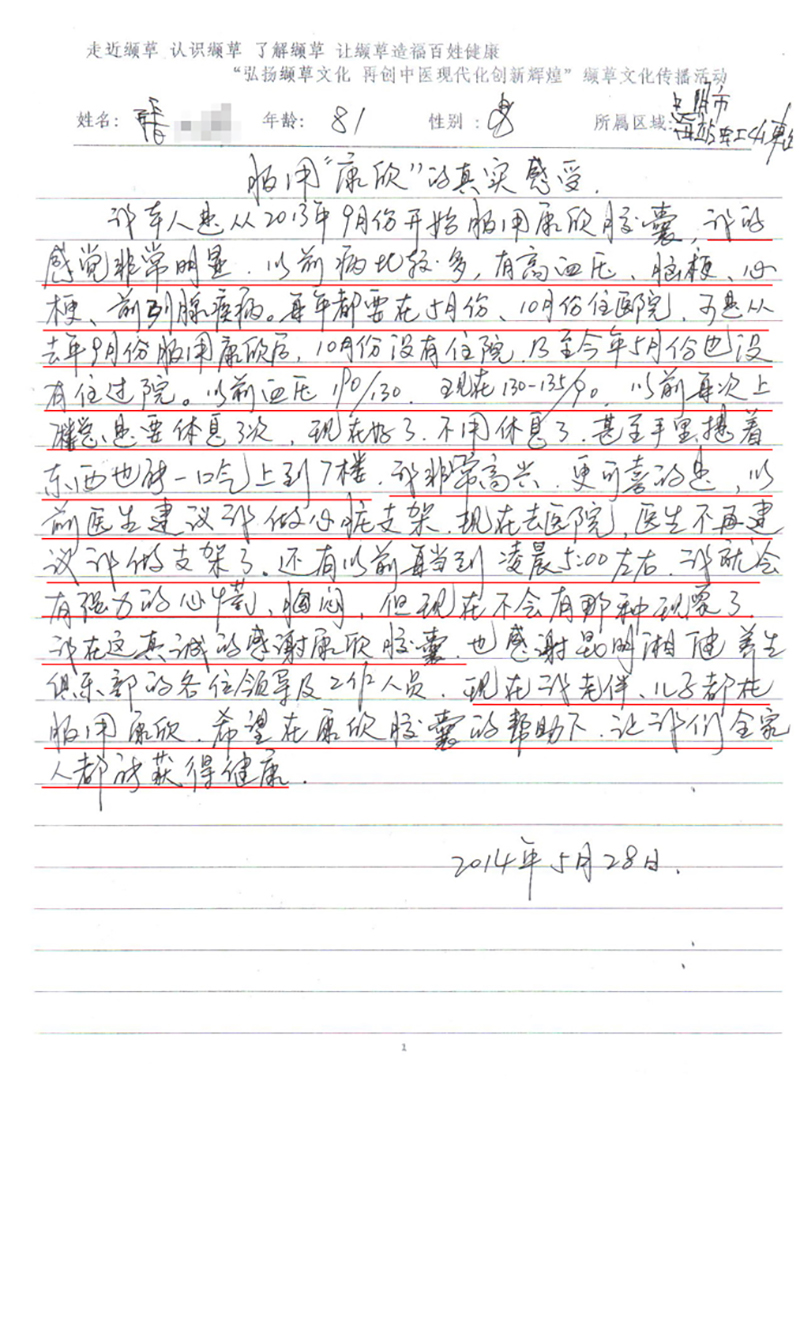 走近缬草 认识缬草 了解缬草 让缬草造福百姓健康
“弘扬缬草文化 再创中医现代化创新辉煌”缬草文化传播活动
姓名: 年龄: 81 性别: 男 所属区域: 昆明市
服用“康欣”的真实感受.
我本人是从2013年9月份开始服用康欣胶囊, 我的
感觉非常明显. 以前病比较多, 有高血压、脑梗、心
梗、前列腺疾病。每年都要在5月份、10月份住医院, 可是从
去年9月份服用康欣后, 10月份没有住院. 乃至今年5月份也没
有住过院。以前血压190/130. 现在130-135/90. 以前每次上
楼总是要休息3次, 现在好了. 不用休息了. 甚至手里提着
东西也能一口气上到7楼. 我非常高兴. 更可喜的是, 以
前医生建议我做心脏支架. 现在去医院, 医生不再建
议我做支架了. 还有以前每当到凌晨5:00左右. 我就会
有强力的心慌、胸闷, 但现在不会有那种现象了.
我在这真诚的感谢康欣胶囊. 也感谢昆明湘健养生
俱乐部的各位领导及工作人员. 现在我老伴、儿子都在
服用康欣. 希望在康欣胶囊的帮助下. 让我们全家
人都能获得健康.
2014年5月28日.
1